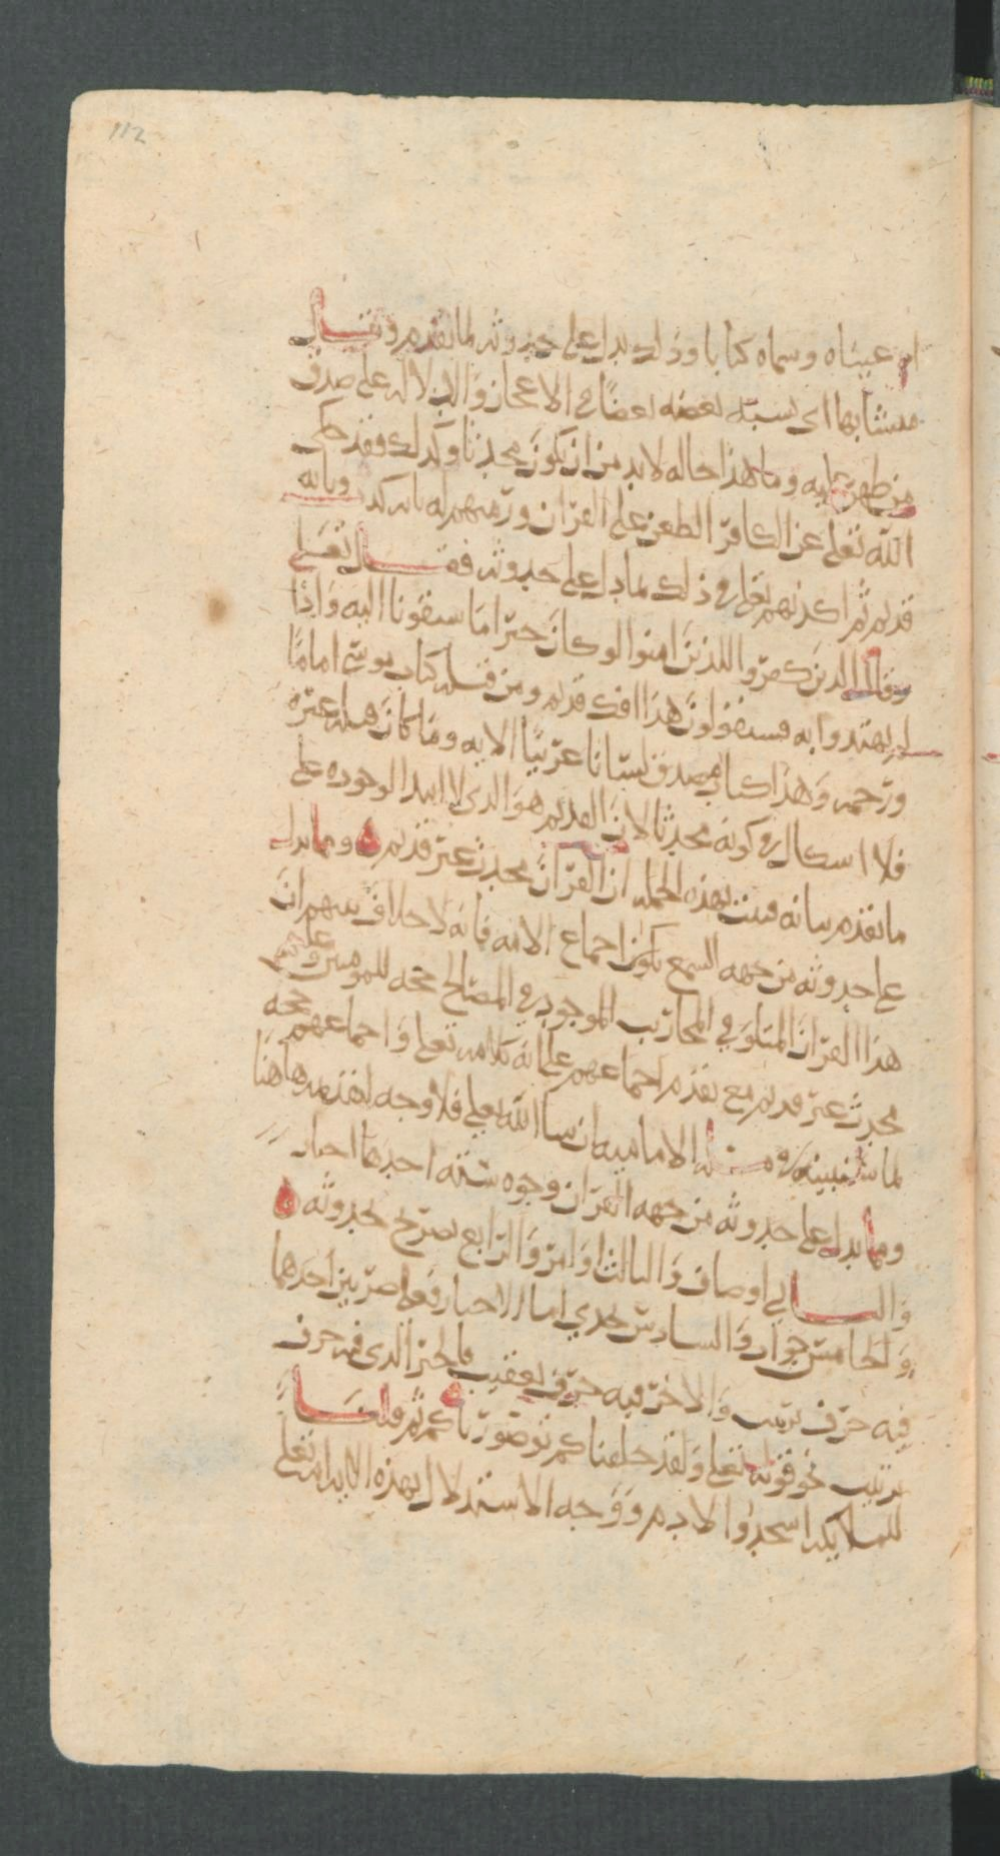 112
او عيناه وسماه كتابا وذلك يدل على حدوثه لما تقدم وقال
متشابها اى يشبه بعضه بعضا في الاعجاز والدلالة على صدق
من ظهر عليه وما هذا حاله لا بد من ان يكون محدثا وكذلك فقد حكى
الله تعلى عن الكافر الطعن على القران ورميهم له بانه كذب وبانه
قديم ثم اكذبهم تعلى في ذلك بما دل على حدوثه فقال تعلى
وقال الذين كفروا للذين امنوا لو كان خيرا ما سبقونا اليه واذ
لم يهتدوا به فسيقولون هذا افك قديم ومن قبله كتاب موسى اماما
ورحمه وهذا كتاب مصدق لسانا عربيا الايه وما كان قبله غيره
فلا اشكال في كونه محدثا لان القديم هو الذي لا ابتدا لوجوده على
ما تقدم بيانه فثبت بهذه الجمله ان القران محدث غير قديم ومما يدل
على حدوثه من جهه السمع اجماع الامه فانه لا خلاف بينهم ان
هذا القران المتلو في المحاريب الموجود في المصاحف حجه للمومنين وعليهم
محدث غير قديم مع تقدم اجماعهم على انه كلامه تعلى واجماعهم حجه
لما سنبينه في مسله الامامه ان شا الله تعلى فلا وجه لتقديمه هاهنا
ومما يدل على حدوثه من جهه القران وجوه سته احدها اخبار
والثاني اوصاف والثالث اوامر والرابع تصريح بحدوثه
والخامس جواب والسادس تحدي اما الاخبار فعلى ضربين احدهما
فيه حرف ترتيب والاخر فيه حرف تعقيب فالخبر الذي فيه حرف
ترتيب نحو قوله تعلى ولقد خلقناكم ثم صورناكم ثم قلنا
للملايكه اسجدوا لادم ووجه الاستدلال بهذه الايه انه تعلى